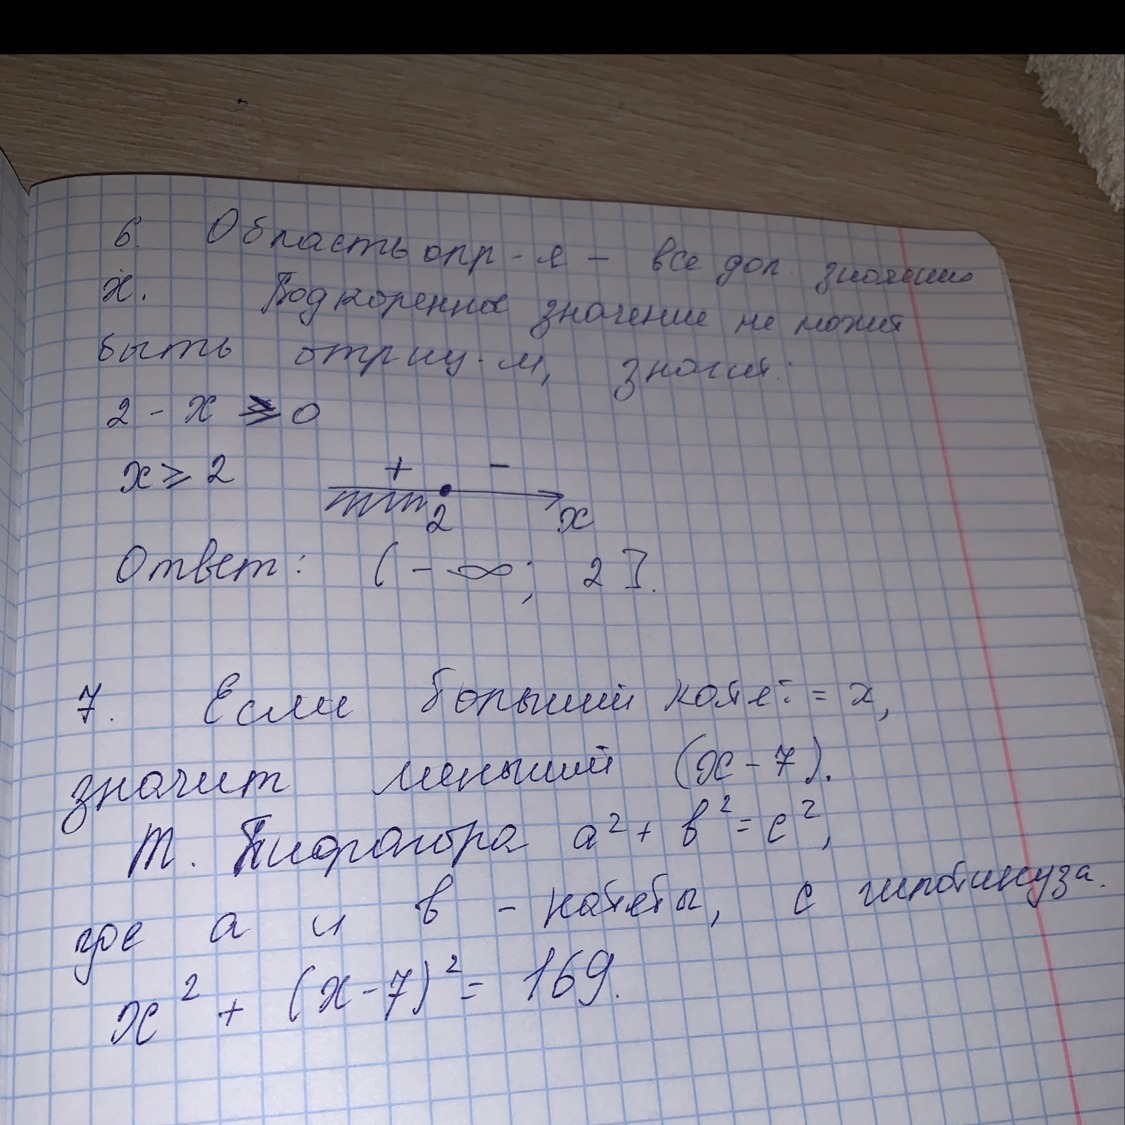 6. Область опр-я - все доп. значения
х. Подкоренное значение не может
быть отриц.м, значит:
2 - х ⩾ 0
х ⩾ 2
+ -
2 х
Ответ: (-∞; 2].
7. Если больший катет = х,
значит меньший (х-7).
Т. Пифагора a² + b² = c²,
где а и b - катеты, с гипотенуза.
х² + (х-7)² = 169.